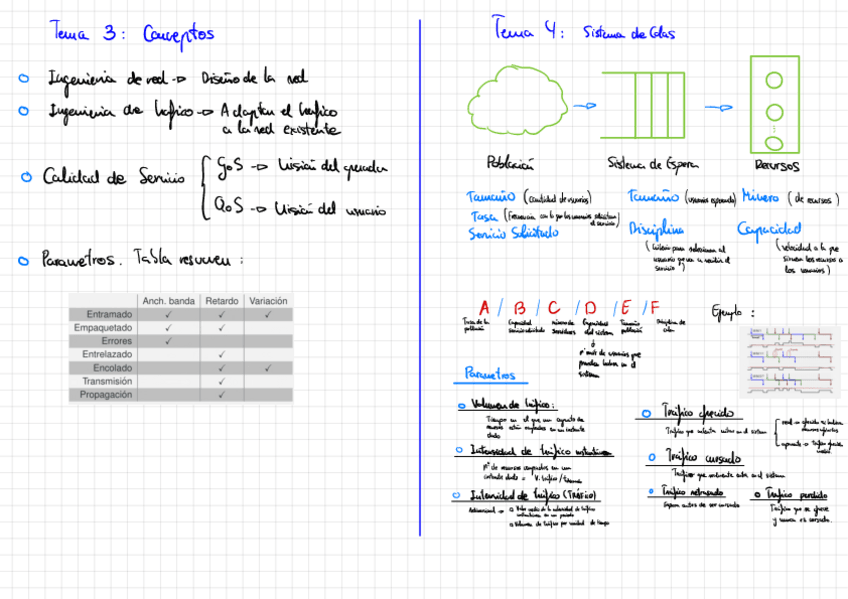 Tema 3: Conceptos
Ingeniería de red → Diseño de la red
Ingeniería de tráfico → Adaptar el tráfico
a la red existente
Calidad de Servicio
GoS → Visión del operador
QoS → Visión del usuario
Parametros. Tabla resumen:
Anch. banda Retardo Variación
Entramado ✓ ✓ ✓
Empaquetado ✓ ✓
Errores ✓
Entrelazado ✓
Encolado ✓ ✓
Transmisión ✓
Propagación ✓
Tema 4: Sistema de Colas
Población Sistema de Espera Recursos
Tamaño (cantidad de usuarios)
Tasa (frecuencia con la que los usuarios solicitan
el servicio)
Servicio Solicitado
Tamaño (usuarios esperando)
Disciplina
(criterio para seleccionar al
usuario que va a recibir el
servicio)
Número (de recursos)
Capacidad
(velocidad a la que
sirven los recursos a
los usuarios)
A / B / C / D / E / F
Tasa de la
población
Capacidad
número de
servidores
Capacidad
del sistema
Tamaño
población
Disciplina de
cola
ó
nº máx de usuarios que
pueden haber en el
sistema
Ejemplo:
Parametros
Volumen de tráfico:
Tiempo en el que un conjunto de
recursos están ocupados en un instante
dado
Intensidad de tráfico instantánea
Nº de recursos ocupados en un
instante dado = V. tráfico / tiempo
Intensidad de tráfico (TRÁFICO)
Valor medio de la intensidad de tráfico
instantánea en un periodo
Volumen de tráfico por unidad de tiempo
Tráfico ofrecido
Tráfico que intenta entrar en el sistema
Tráfico cursado
Tráfico que realmente entra en el sistema
Tráfico retrasado
Espera antes de ser cursado
Tráfico perdido
Tráfico que se ofrece
y nunca es cursado.